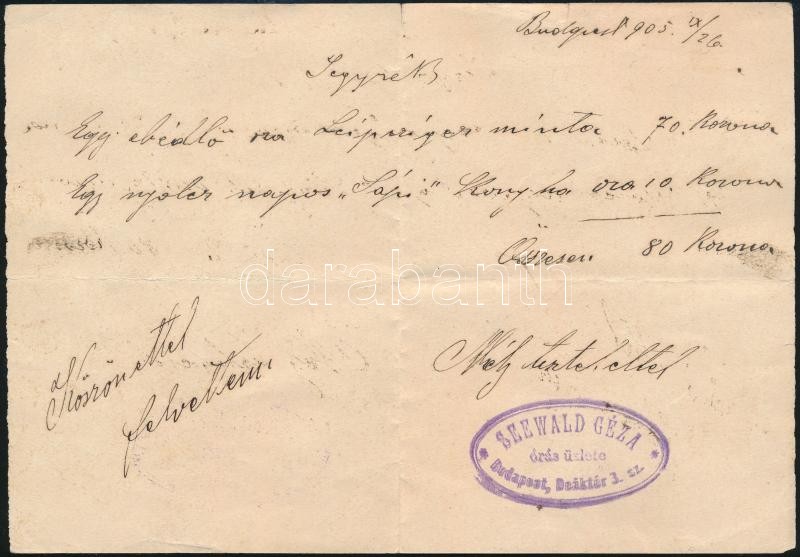 Budapest 905. IX/26
Jegyzék
Egy ebédlő ra Leipziger minta 70. Korona
Egy nyolcz napos „ konyha ora 10. Korona
Összesen 80 Korona
darabanth
Köszönettel
felvettem.
Mély tisztelettel
SEEWALD GÉZA
órás üzlete
Budapest, Deáktár 3. sz.